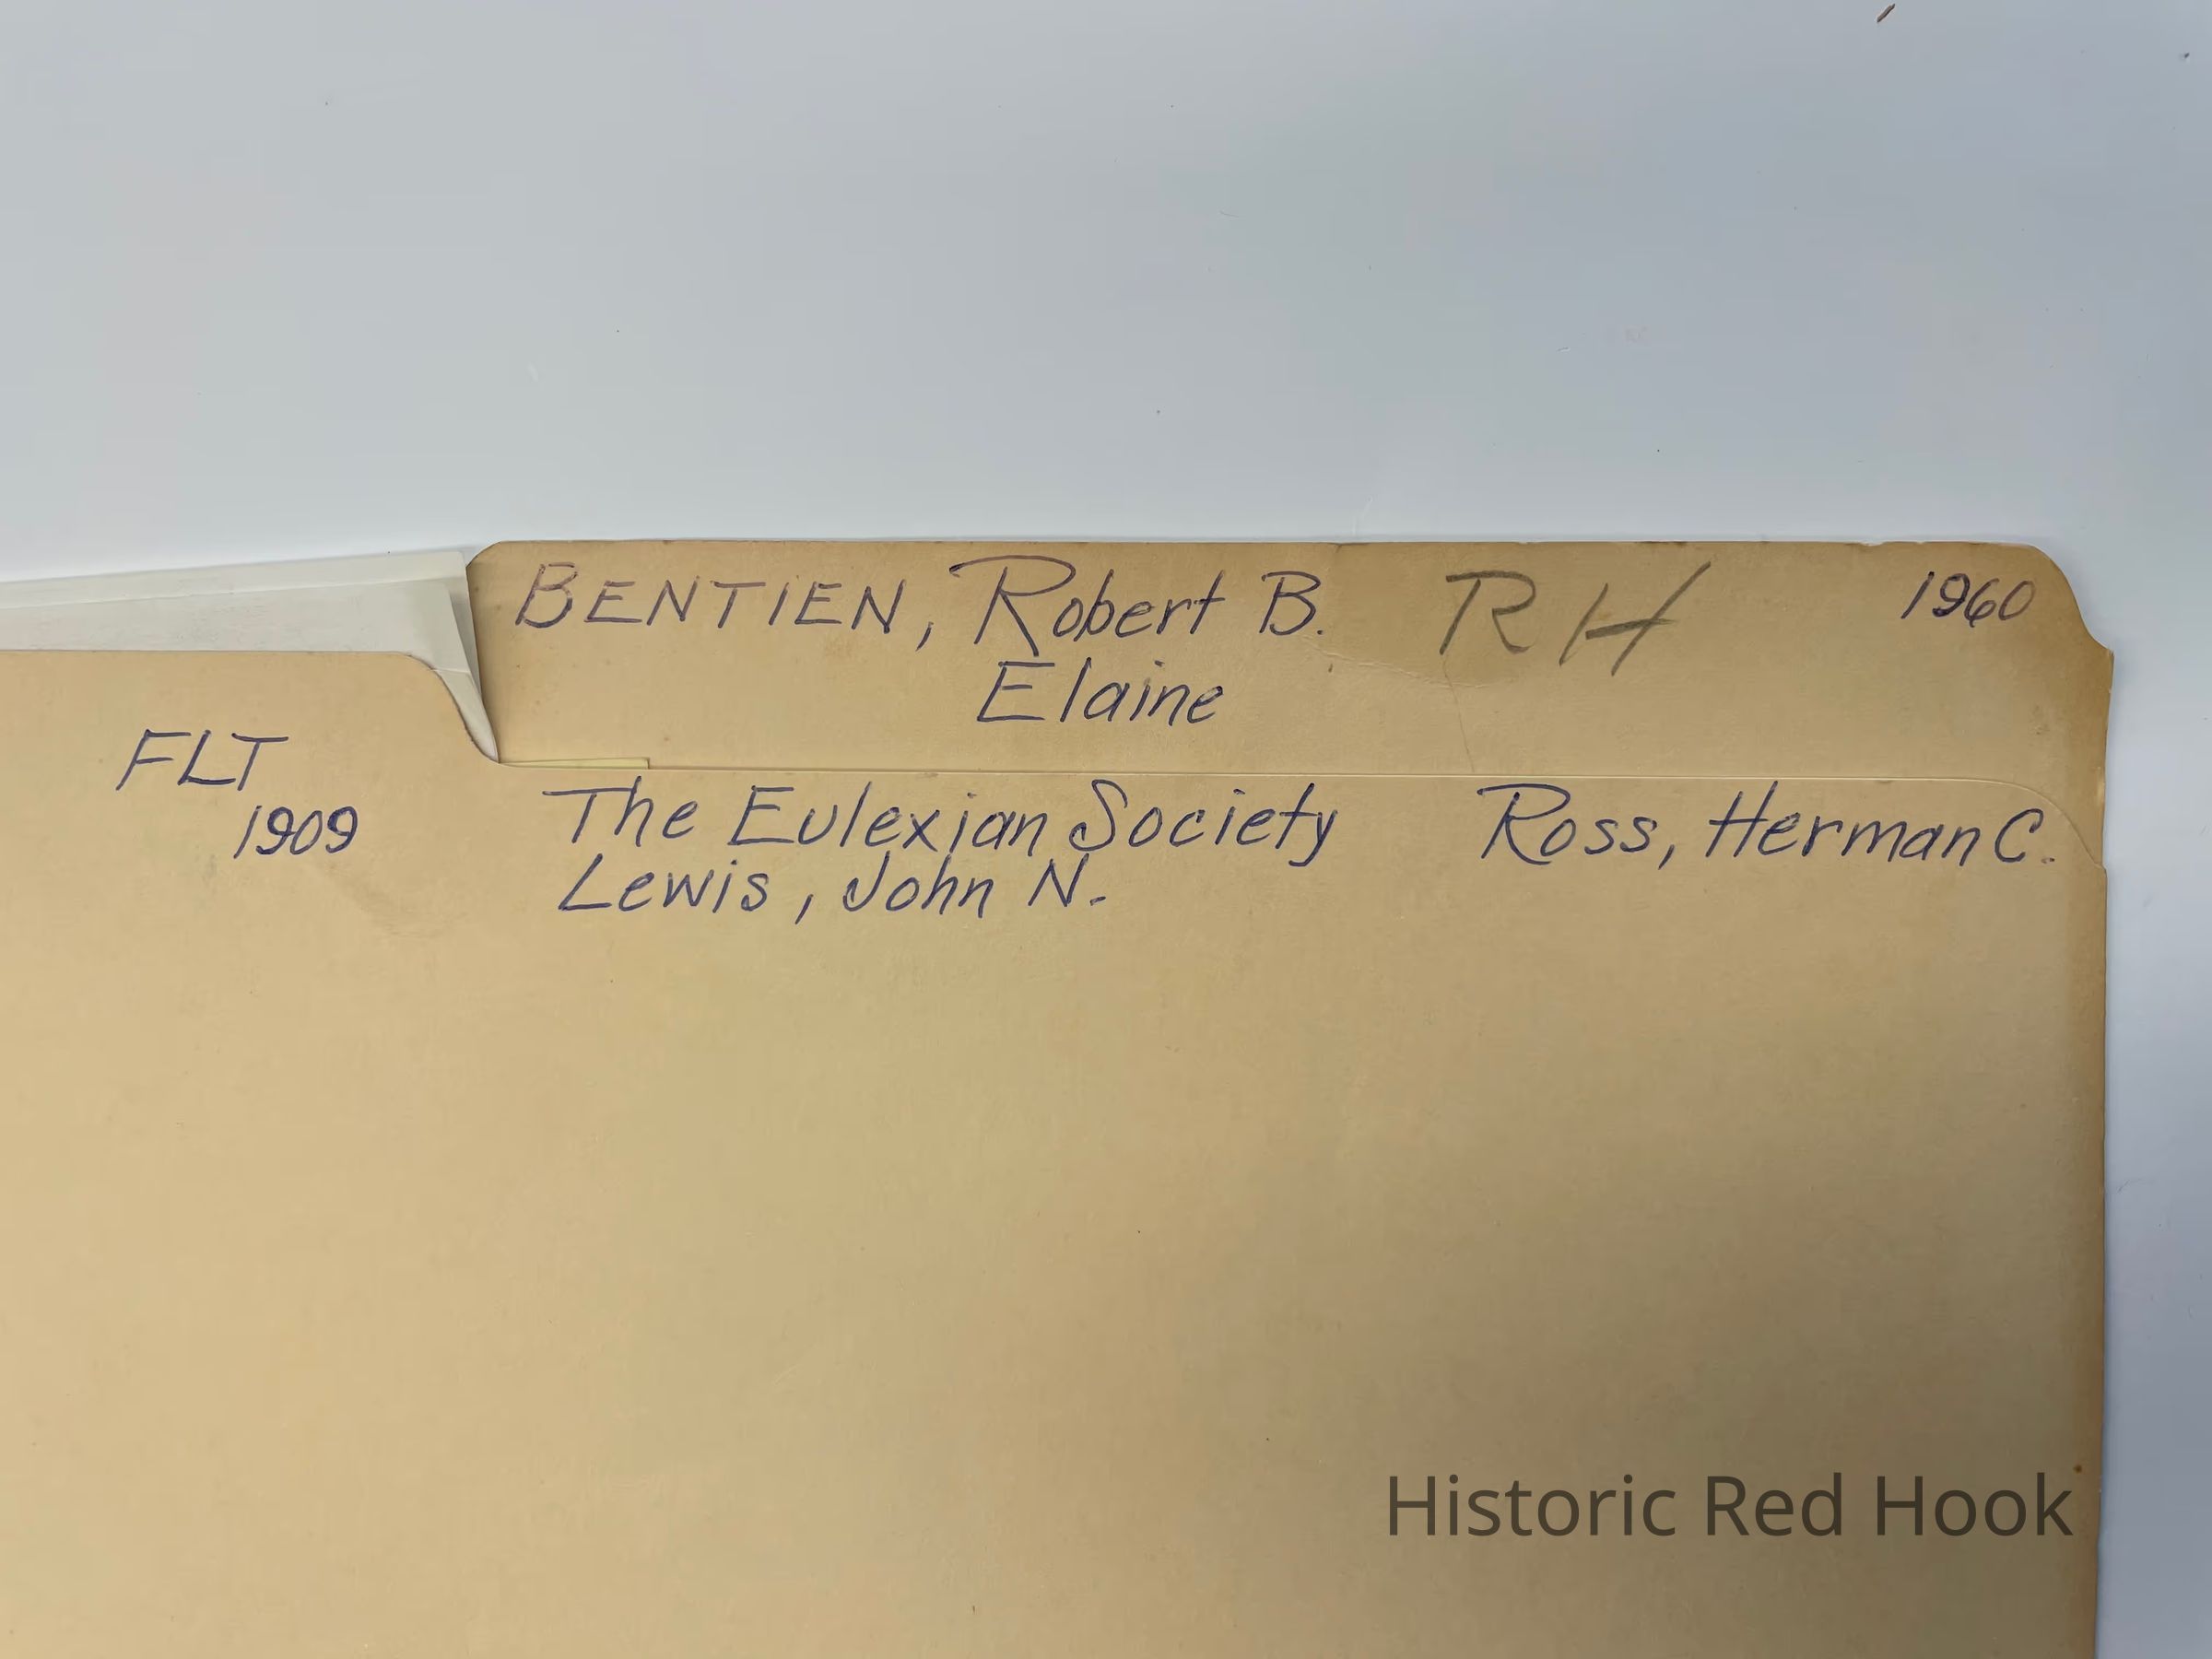 BENTIEN, Robert B. RH 1960
Elaine
FLT
1909
The Eulexian Society Ross, Herman C.
Lewis, John N.
Historic Red Hook